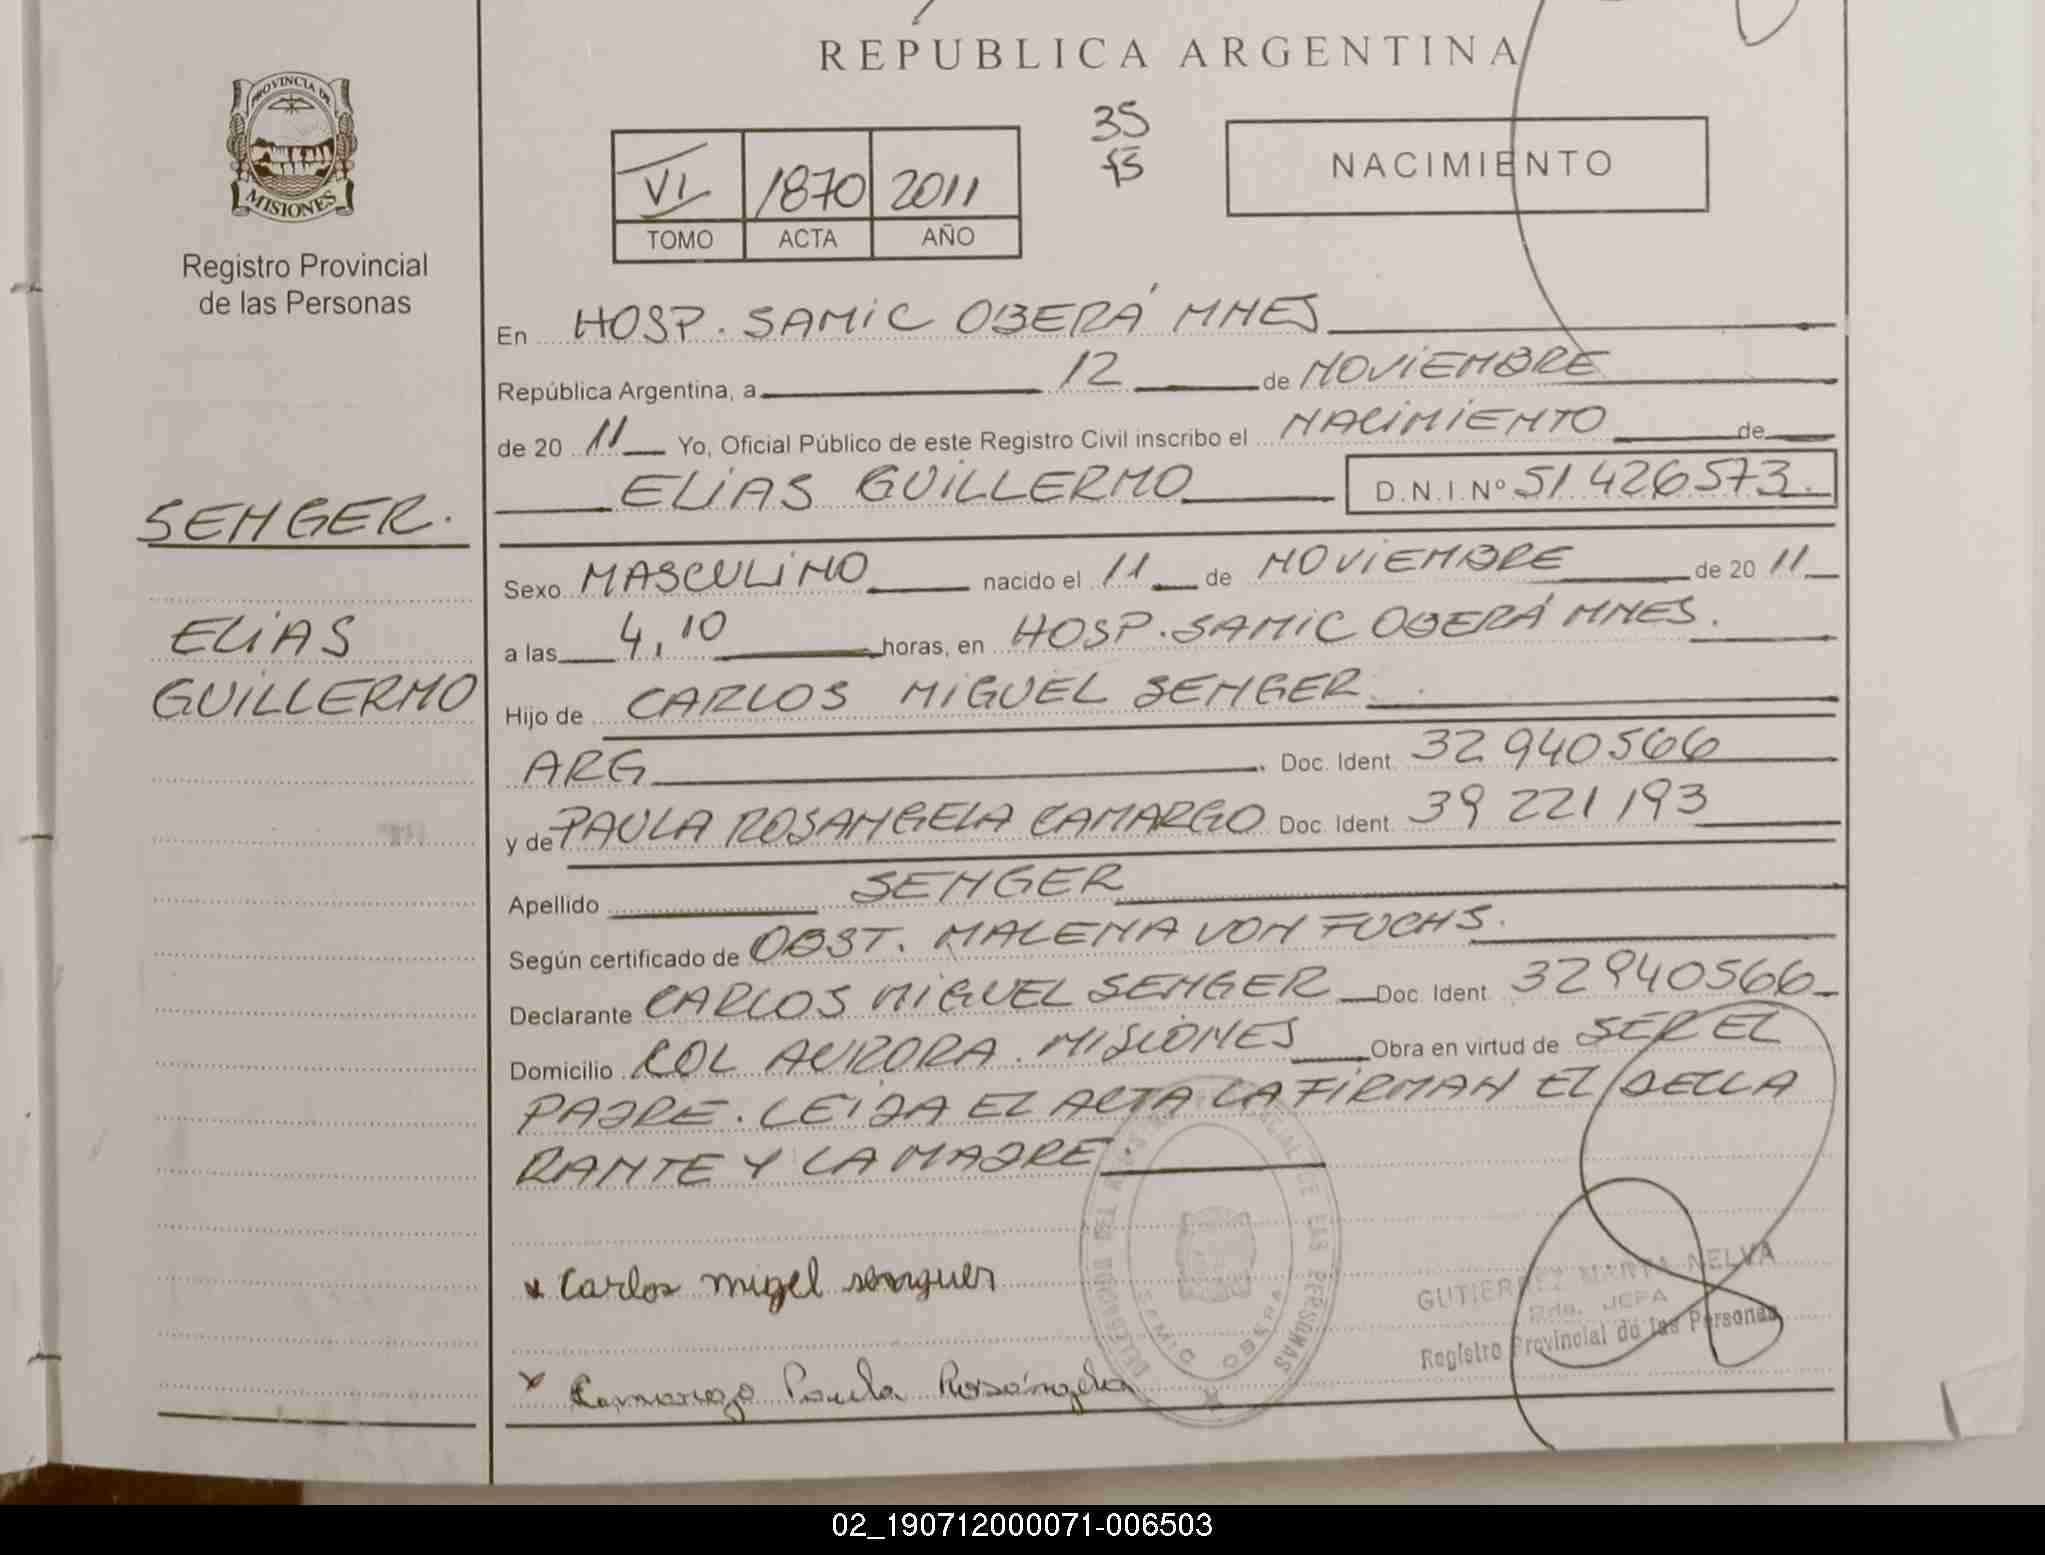 REPUBLICA ARGENTINA
PROVINCIA DE
MISIONES
Registro Provincial
de las Personas
VI 1870 2011
TOMO ACTA AÑO
35
NACIMIENTO
En HOSP. SAMIC OBERÁ MNES
República Argentina, a 12 de NOVIEMBRE
de 20 11 Yo, Oficial Público de este Registro Civil inscribo el NACIMIENTO de
ELIAS GUILLERMO D.N.I. Nº 51 426573.
SENGER.
ELIAS
GUILLERMO
Sexo MASCULINO nacido el 11 de NOVIEMBRE de 20 11
a las 4,10 horas, en HOSP. SAMIC OBERÁ MNES.
Hijo de CARLOS MIGUEL SENGER
ARG. Doc. Ident. 32 940566
y de PAULA ROSANGELA CAMARGO Doc. Ident. 39 221 193
Apellido SENGER
Según certificado de OBST. MALENA VON FUCHS.
Declarante CARLOS MIGUEL SENGER Doc. Ident. 32940566
Domicilio COL AURORA. MISIONES Obra en virtud de SER EL
PADRE. LEIDA EL ACTA LA FIRMAN EL DECLA
RANTE Y LA MADRE.
x Carlos migel senguer
x Camargo Paula Rosángela
DE LAS PERSONAS
SAMIC OBERA
GUTIERREZ MARTA NELVA
JEFA
Registro Provincial de las Personas
02_190712000071-006503